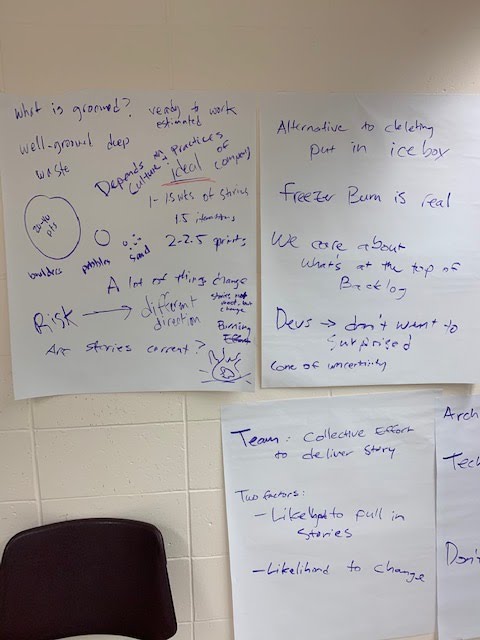 what is groomed? ready to work
estimated
well-groomed deep
waste
Depends on
culture + practices
ideal of
company
1-1.5 wks of stories
1.5 iterations
2-2.5 sprints
20-40
pts
boulders pebbles sand
A lot of things change
Risk → different
direction
stories not
meet, but
change
Burning
Effort
Are stories current?
Alternative to deleting
put in icebox
freezer Burn is real
We care about
what's at the top of
Backlog
Devs → don't want to
surprised
cone of uncertainity
Team: Collective Effort
to deliver story
Two factors:
- Likely to pull in
stories
- Likelihood to change
Arch
Tech
Don't